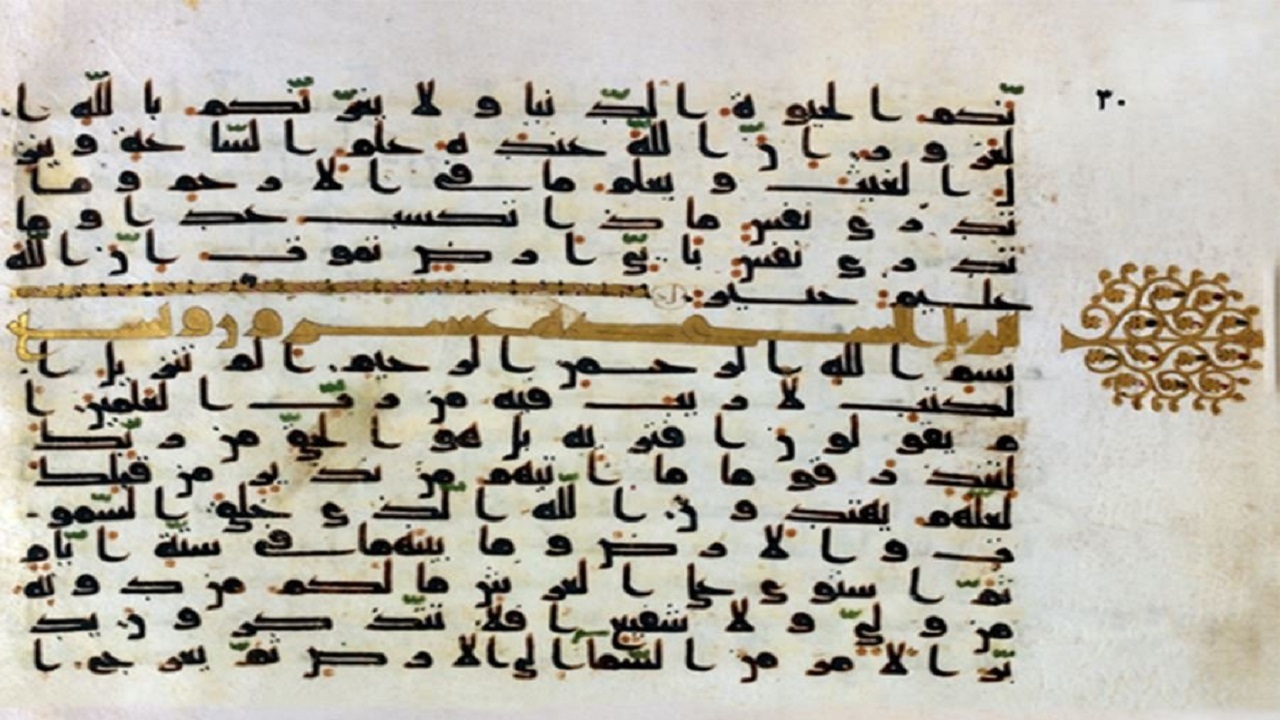 نكم الحيوة الدنيا ولا يغرنكم بالله ا
لغرور ان الله عنده علم الساعة وينز
ل الغيث ويعلم ما في الارحام وما
تدري نفس ماذا تكسب غدا وما
تدري نفس باي ارض تموت ان الله
عليم خبير
السجدة عشرون وتسع
بسم الله الرحمن الرحيم الم تنزيل ا
لكتب لا ريب فيه من رب العلمين ا
م يقولون افتريه بل هو الحق من ربك
لتنذر قوما ما اتيهم من نذير من قبلك
لعلهم يهتدون الله الذي خلق السمو
ت والارض وما بينهما في ستة ايام
ثم استوى على العرش ما لكم من دونه
من ولي ولا شفيع افلا تتذكرون يد
بر الامر من السما الى الارض ثم يعرج ا
٣٠